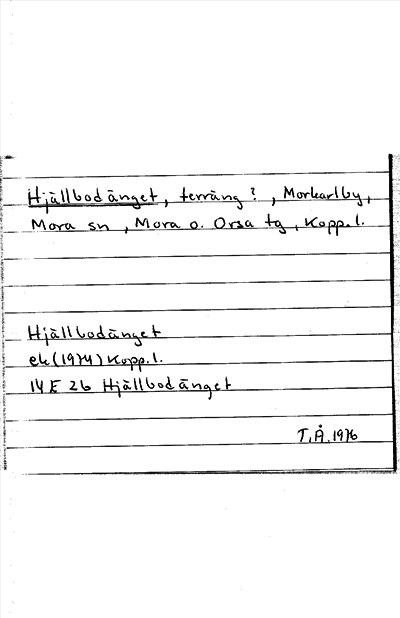 Hjällbodänget, terräng?, Morkarlby,
Mora sn, Mora o. Orsa tg, Kopp. l.
Hjällbodänget
ek (1974) Kopp. l.
14 E 2b Hjällbodänget
T.Å. 1976